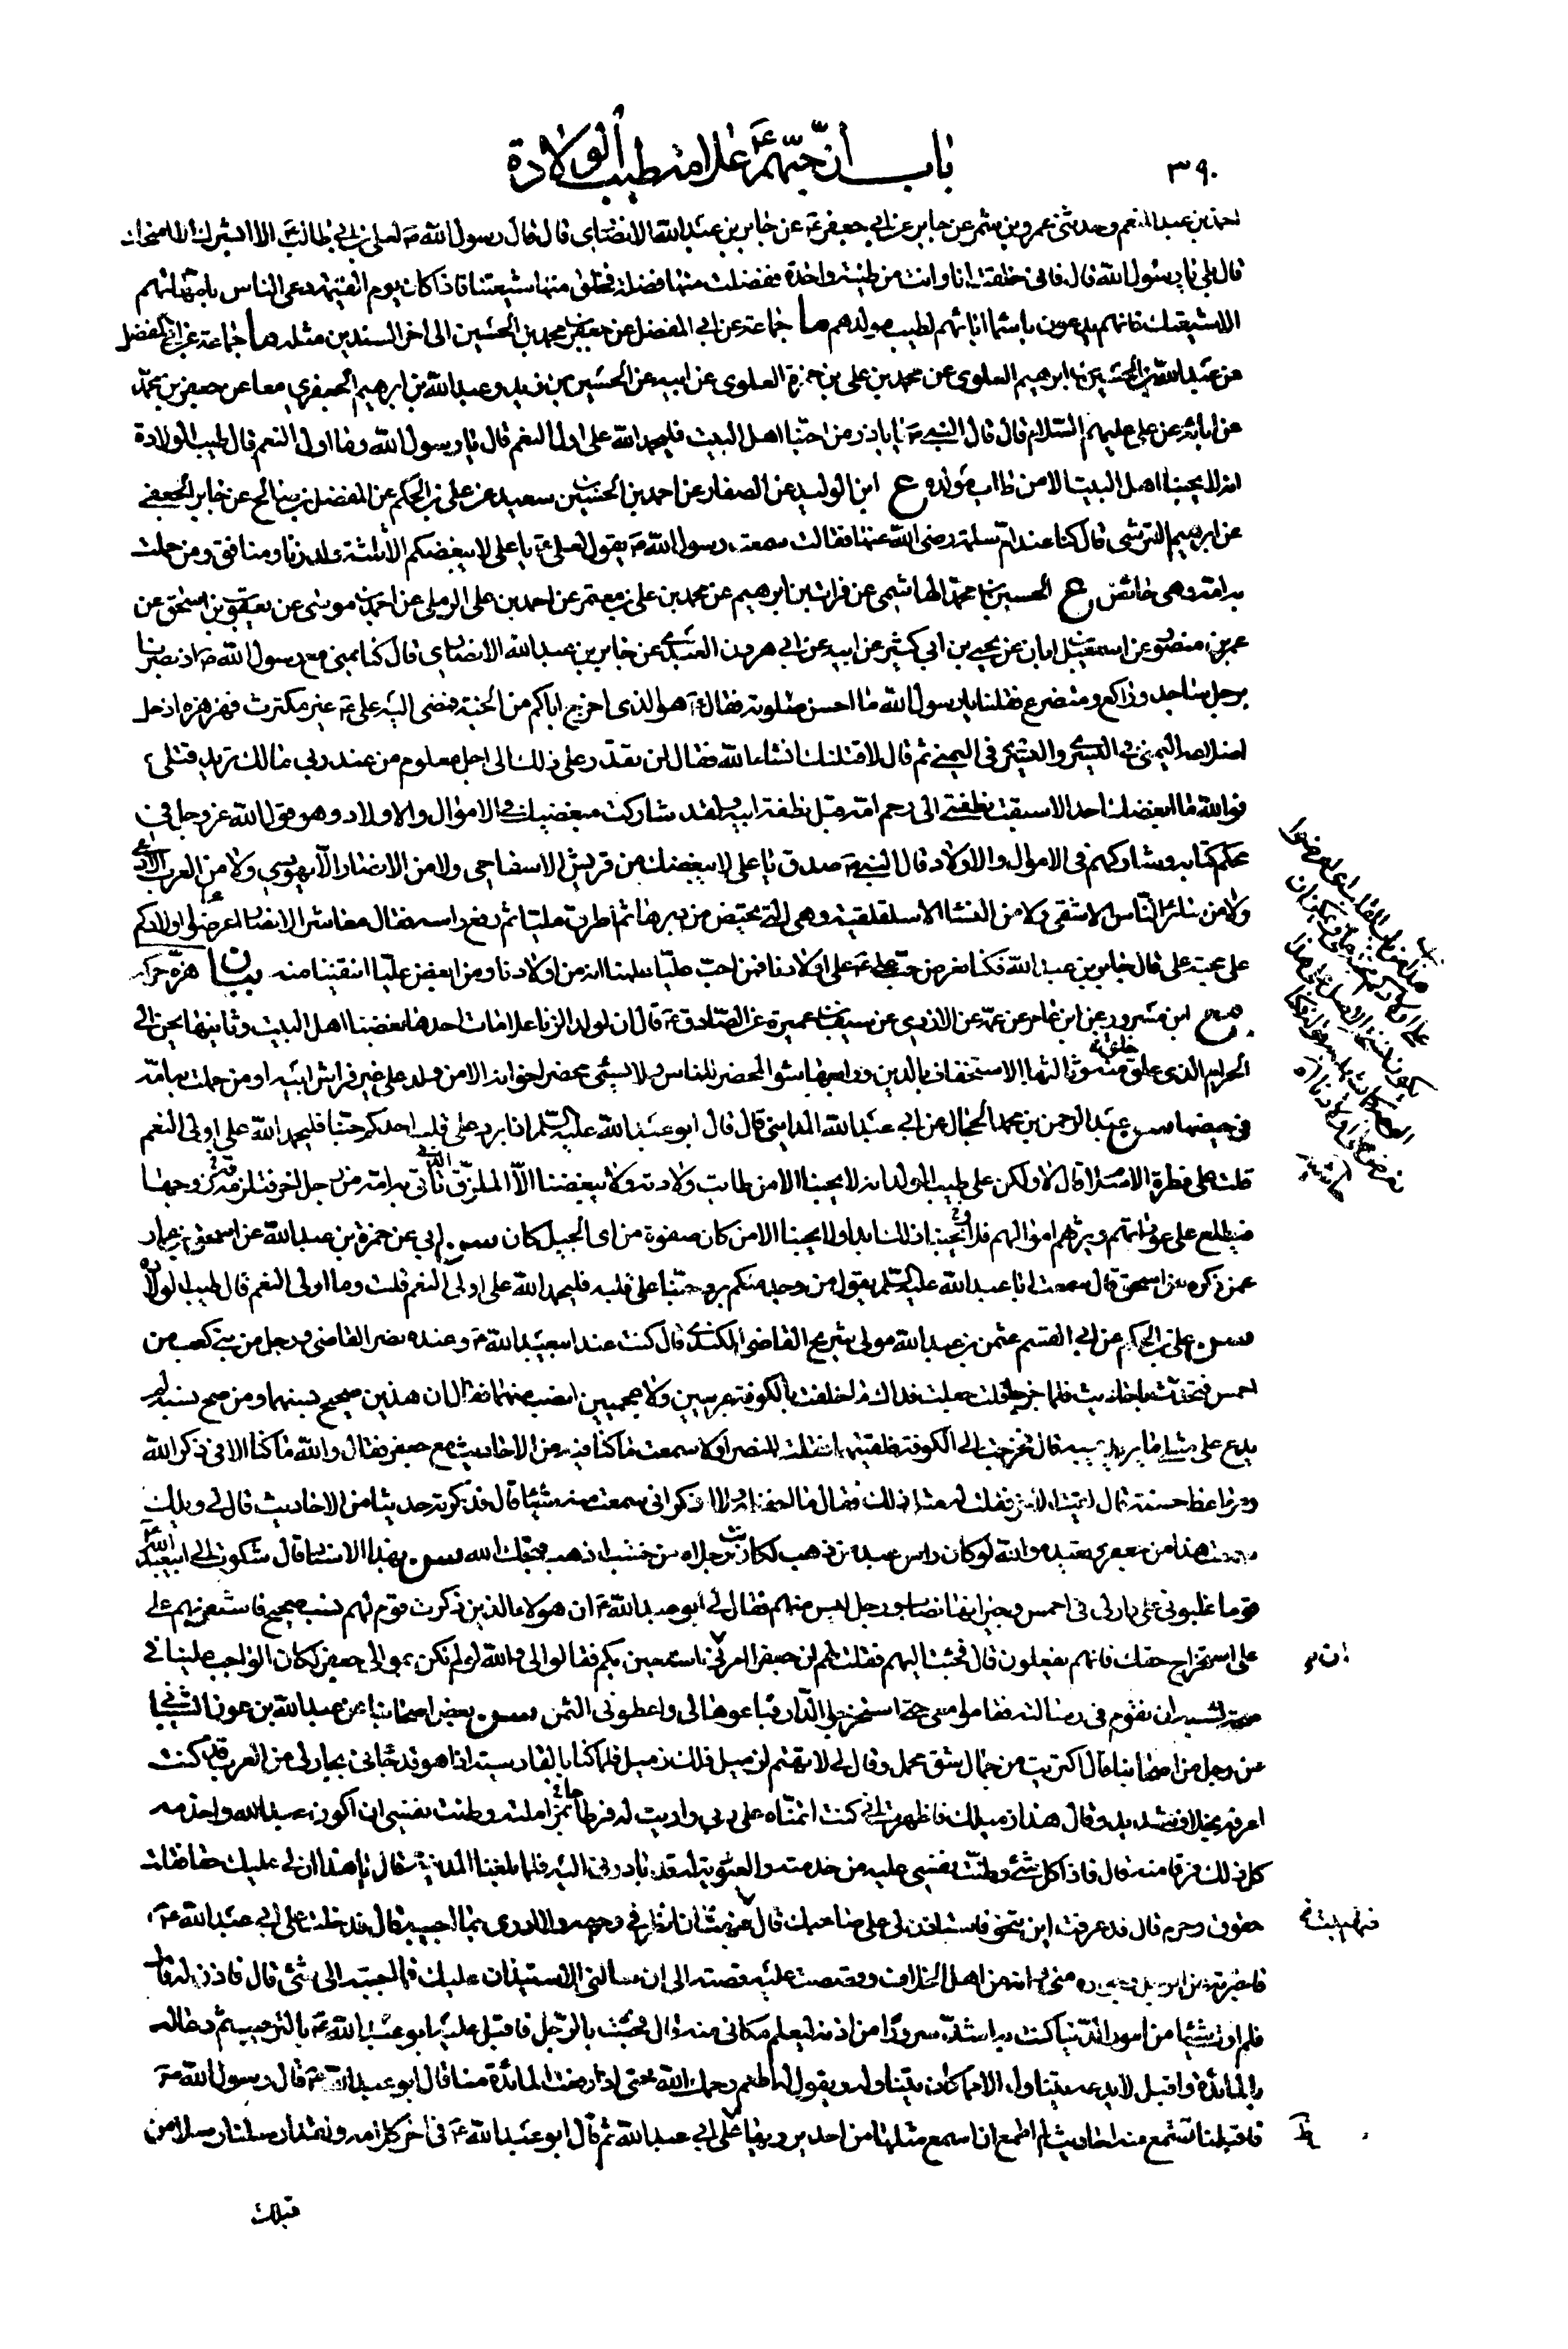 ٣٩٠
باب ان حبهم ع علامة طيب الولادة
احمد بن عبد المنعم وحدثنى عمرو بن شمر عن جابر عن ابي جعفر ع عن جابر بن عبد الله الانصارى قال قال رسول الله ص لعلى بن ابي طالب ع الا ابشرك الا امنحك
قال بلى يا رسول الله قال فانى خلقت انا وانت من طينة واحدة ففضلت منها فضلة فخلق منها شيعتنا فاذا كان يوم القيمة دعى الناس بامهاتهم
الا شيعتك فانهم يدعون باسماء ابائهم لطيب مولدهم ما جماعة عن ابي المفضل عن جعفر بن محمد بن الحسين الى اخر السندين مثله ما جماعة عن ابي المفضل
عن عبد الله بن الحسين بن ابرهيم العلوى عن محمد بن على بن حمزة العلوى عن ابيه عن الحسين بن زيد وعبد الله بن ابرهيم الجعفري معا عن جعفر بن محمد
عن ابائه عن على عليهم السلام قال قال النبي ص يا باذر من احبنا اهل البيت فليحمد الله على اول النعم قال يا رسول الله وما اول النعم قال طيب الولادة
انه لا يحبنا اهل البيت الا من طاب مولده ع ابن الوليد عن الصفار عن احمد بن الحسين بن سعيد عن على بن الحكم عن المفضل بن صالح عن جابر الجعفي
عن ابرهيم القرشى قال كنا عند ام سلمة رضى الله عنها فقالت سمعت رسول الله ص يقول لعلى ع يا على لا يبغضكم الا ثلثة ولد زنا ومنافق ومن حملت
به امه وهى حائض ع الحسين بن محمد الهاشمى عن فرات بن ابرهيم عن محمد بن على بن معتمر عن احمد بن على الرملى عن احمد بن موسى عن يعقوب بن اسحق عن
عمر بن منصور عن اسمعيل بن ابان عن يحيى بن ابي كثير عن ابيه عن ابي هرون العبدي عن جابر بن عبد الله الانصارى قال كنا بمنى مع رسول الله ص اذ بصرنا
برجل ساجد وراكع ومتضرع فقلنا يا رسول الله ما احسن صلوته فقال ص هو الذى اخرج اباكم من الجنة فمضى اليه على ع غير مكترث فهزه هزة ادخل
اضلاعه اليمنى في اليسرى واليسرى في اليمنى ثم قال لاقتلنك انشاء الله فقال لن تقدر على ذلك الى اجل معلوم من عند ربي مالك تريد قتلى
فوالله ما ابغضك احد الا سبقت نطفتي الى رحم امه قبل نطفة ابيه ولقد شاركت مبغضيك في الاموال والاولاد وهو قول الله عز وجل في
محكم كتابه وشاركهم فى الاموال والاولاد قال النبي ص صدق يا على لا يبغضك من قريش الا سفاحى ولا من الانصار الا يهودي ولا من العرب الا دعي
ولا من سائر الناس الا شقى ولا من النساء الا سلقلقية وهى التى تحيض من دبرها ثم اطرق مليا ثم رفع راسه فقال معاشر الانصار اعرضوا اولادكم
على محبة على قال جابر بن عبد الله فكنا نعرض حب على ع على اولادنا فمن احب عليا علمنا انه من اولادنا ومن ابغض عليا انتفينا منه بيان هزه حركه
ابن مسرور عن ابن عامر عن عمه عن الازدى عن سيف بن عميرة عن الصادق ع قال ان لولد الزنا علامات احدها بغضنا اهل البيت وثانيها يحن الى
الحرام الذى خلق منه وثالثها الاستخفاف بالدين ورابعها سوء المحضر للناس ولا يسئ محضر اخوانه الا من ولد على غير فراش ابيه او من حملت به امه
في حيضها سن عبد الرحمن بن محمد عن ابي عبد الله المداينى قال قال ابو عبد الله عليه السلم اذا برد على قلب احدكم حبنا فليحمد الله على اولى النعم
قلت على فطرة الاسلام قال لا ولكن على طيب المولد انه لا يحبنا الا من طابت ولادته ولا يبغضنا الا الملزق الذى تاتى به امه من رجل اخر فتلزمه زوجها
فيطلع على عوراتهم ويرثهم اموالهم فلا يحبنا ذلك ابدا ولا يحبنا الا من كان صفوة من اى الجيل كان سن ابي عن حمزة بن عبد الله عن
عمن ذكره عن اسحق قال سمعت ابا عبد الله عليه السلم يقول من وجد منكم برد حبنا على قلبه فليحمد الله على اولى النعم قلت وما اولى النعم قال طيب الولادة
سن على بن الحكم عن ابي القسم عثمن بن عبد الله مولى شريح القاضى الكندى قال كنت عند ابيعبد الله ع وعنده نصر القاضى ورجل من بني كعب من
احمس فتحدثا باحاديث فلما خرجا قلت جعلت فداك ما خلفت بالكوفة عربيين ولا عجميين انصب منهما فقال ان هذين صحيح نسبهما ومن صح نسبه لم
يدع على مثل ما يريد قال فخرجت الى الكوفة فلقيتهما فقلت للنصر اولا سمعت ما كنا فيه من الاحاديث مع جعفر فقال والله ما كنا الا فى ذكر الله
ومواعظ حسنة قال لم اذكر انى سمعت منه شيئا قال فذكرته حديثا من الاحاديث قال لى ويلك
سمعت هذا من جعفر والله لو كان راس عبد من ذهب لكانت رجلاه من خشب اذهب قبحك الله سن بهذا الاسناد قال شكوت الى ابيعبد الله ع
قوما غلبونى على دار لى فى احمس وجيرانها نصاب ورجل ليس منهم فقال لى ابو عبد الله ع ان هولاء الذين ذكرت قوم لهم نسب صحيح فاستعن بهم على
على استخراج حقك فانهم يفعلون قال فجئت اليهم فقلت لهم ان جعفرا امرنى ان استعين بكم فقالوا لى والله لو لم نكن بموالى جعفر لكان الواجب علينا فى
ان نقوم فى رسالته فقاموا معى حتى استخرجوا الدار فباعوها لى واعطونى الثمن سن بعض اصحابنا عن عبد الله بن عون الشيبانى
عن رجل من اصحابنا قال اكتريت من جمال شق محمل وقال لى لا تهتم لزميل فلك زميل فلما كنا بالقادسية اذا هو قد جائنى بجار لى من العرب قد كنت
اعرفه بخلاف شديد وقال هذا زميلك فاظهرت انى كنت اتمناه على ربي واديت له فرحا بمزاملته ووطنت نفسى ان اكون عبدا له واخدمه
كل ذلك فرقا منه قال فاذا كل شئ وطنت نفسى عليه من خدمته والعبودية له قد بادرنى اليه فلما بلغنا المدينة قال يا هذا ان لى عليك حقا
حقوق وحرم قال قد عرفت اين تنحو فاستاذن لى على صاحبك قال فبهت ان انظر فى وجهه ولا ادرى بما اجيبه قال فدخلت على ابي عبد الله ع
فاخبرته عن الرجل منى وانه من اهل الخلاف وقصصت عليه قصته الى ان سالنى الاستيذان عليك فما اجبته الى شئ قال فاذن له قال
فلم اوت شيئا من امور الدنيا كنت به اشد سرورا من اذنه ليعلم مكانى منه قال فجئت بالرجل فاقبل عليه ابو عبد الله ع بالترحيب ثم دعا له
بالمائدة واقبل لا يدعه يتناول الا مما كان يتناوله ويقول له اطعم رحمك الله حتى اذا رفعت المائدة منا قال ابو عبد الله ع قال رسول الله ص
فاقبلنا نستمع منه احاديث لم اطمع ان اسمع مثلها من احد يرويها على ابي عبد الله ثم قال ابو عبد الله ع فى اخر كلامه ولقد ارسلنا رسلا من
قبلك